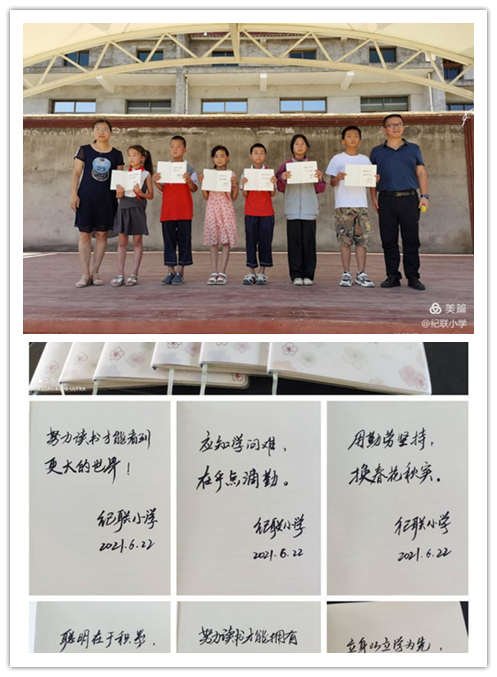 美篇
@纪联小学
努力读书才能看到
更大的世界!
纪联小学
2021.6.22
应知学问难,
在乎点滴勤。
纪联小学
2021.6.22
用勤劳坚持,
换春花秋实。
纪联小学
2021.6.22
聪明在于积累,
努力读书才能拥有
立身以立学为先,